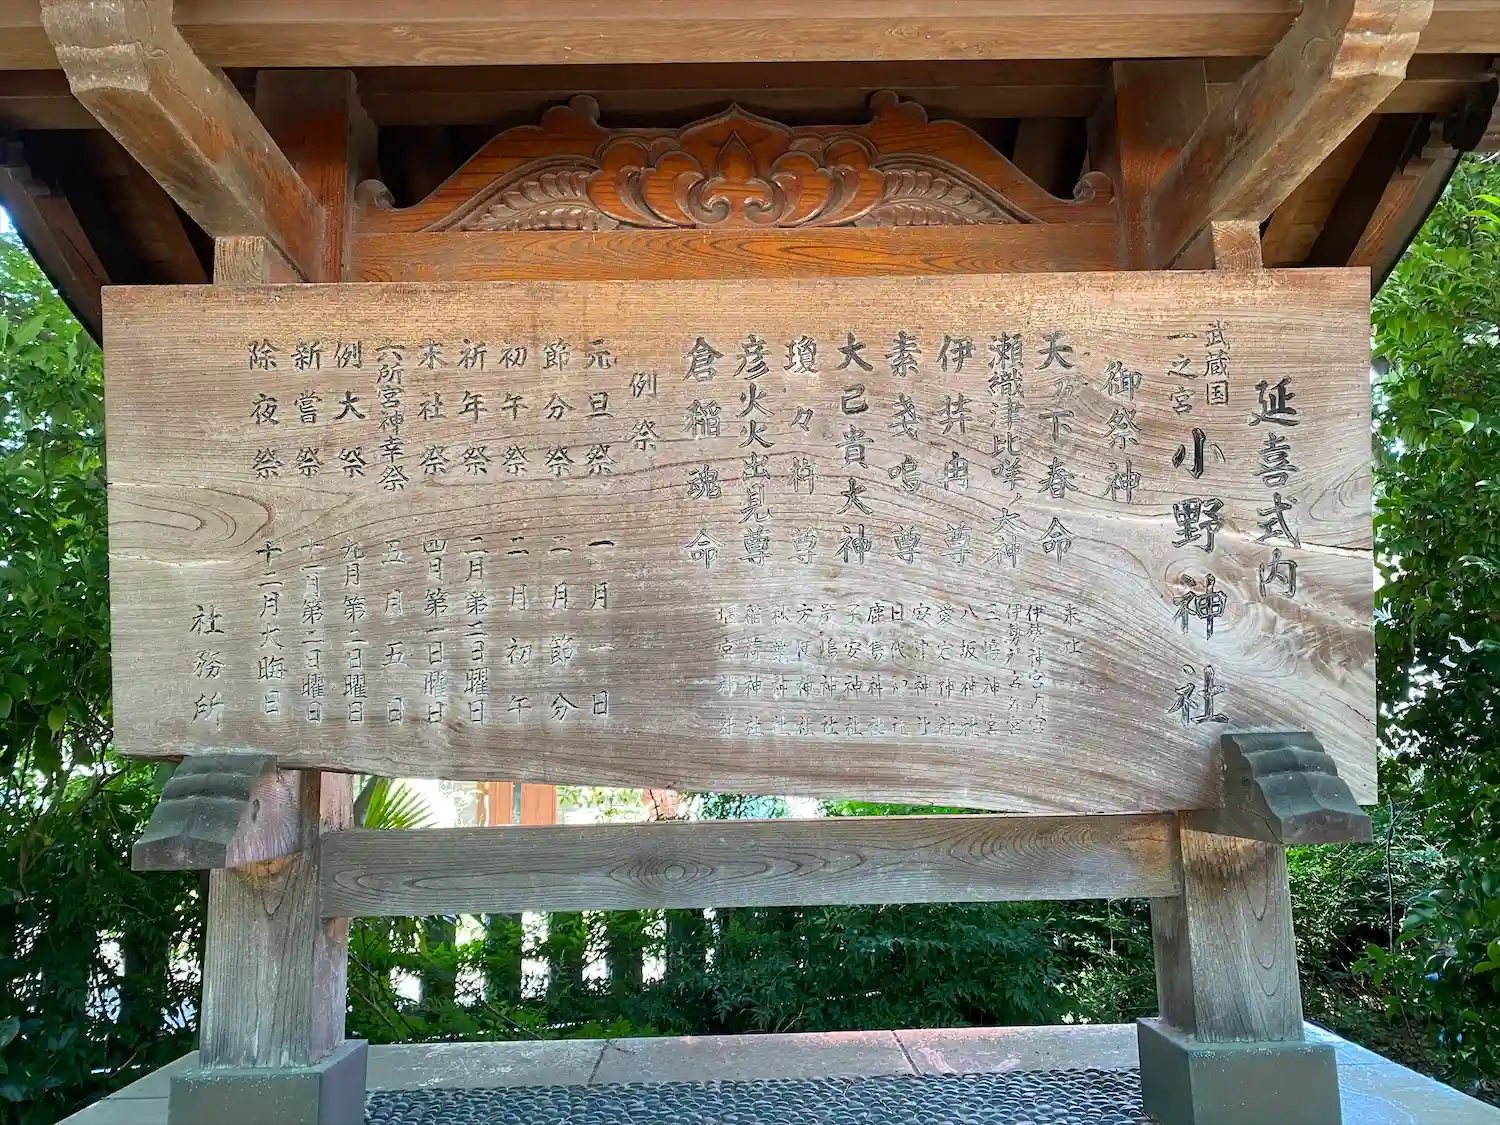 延喜式内
武蔵国
一之宮
小野神社
御祭神
天乃下春命
瀬織津比咩ノ大神
伊弉冉尊
素戔鳴尊
大己貴大神
瓊々杵尊
彦火火出見尊
倉稲魂命
末社
伊勢神宮内宮
伊勢神宮外宮
三嶋神宮
八坂神社
愛宕神社
安津神社
日代神社
鹿島神社
子安神社
厳島神社
方便神社
秋葉神社
稲荷神社
堰宮神社
例祭
元旦祭 一月一日
節分祭 二月節分
初午祭 二月初午
祈年祭 二月第三日曜日
末社祭 四月第一日曜日
六所宮神幸祭 五月五日
例大祭 九月第二日曜日
新嘗祭 十一月第二日曜日
除夜祭 十二月大晦日
社務所